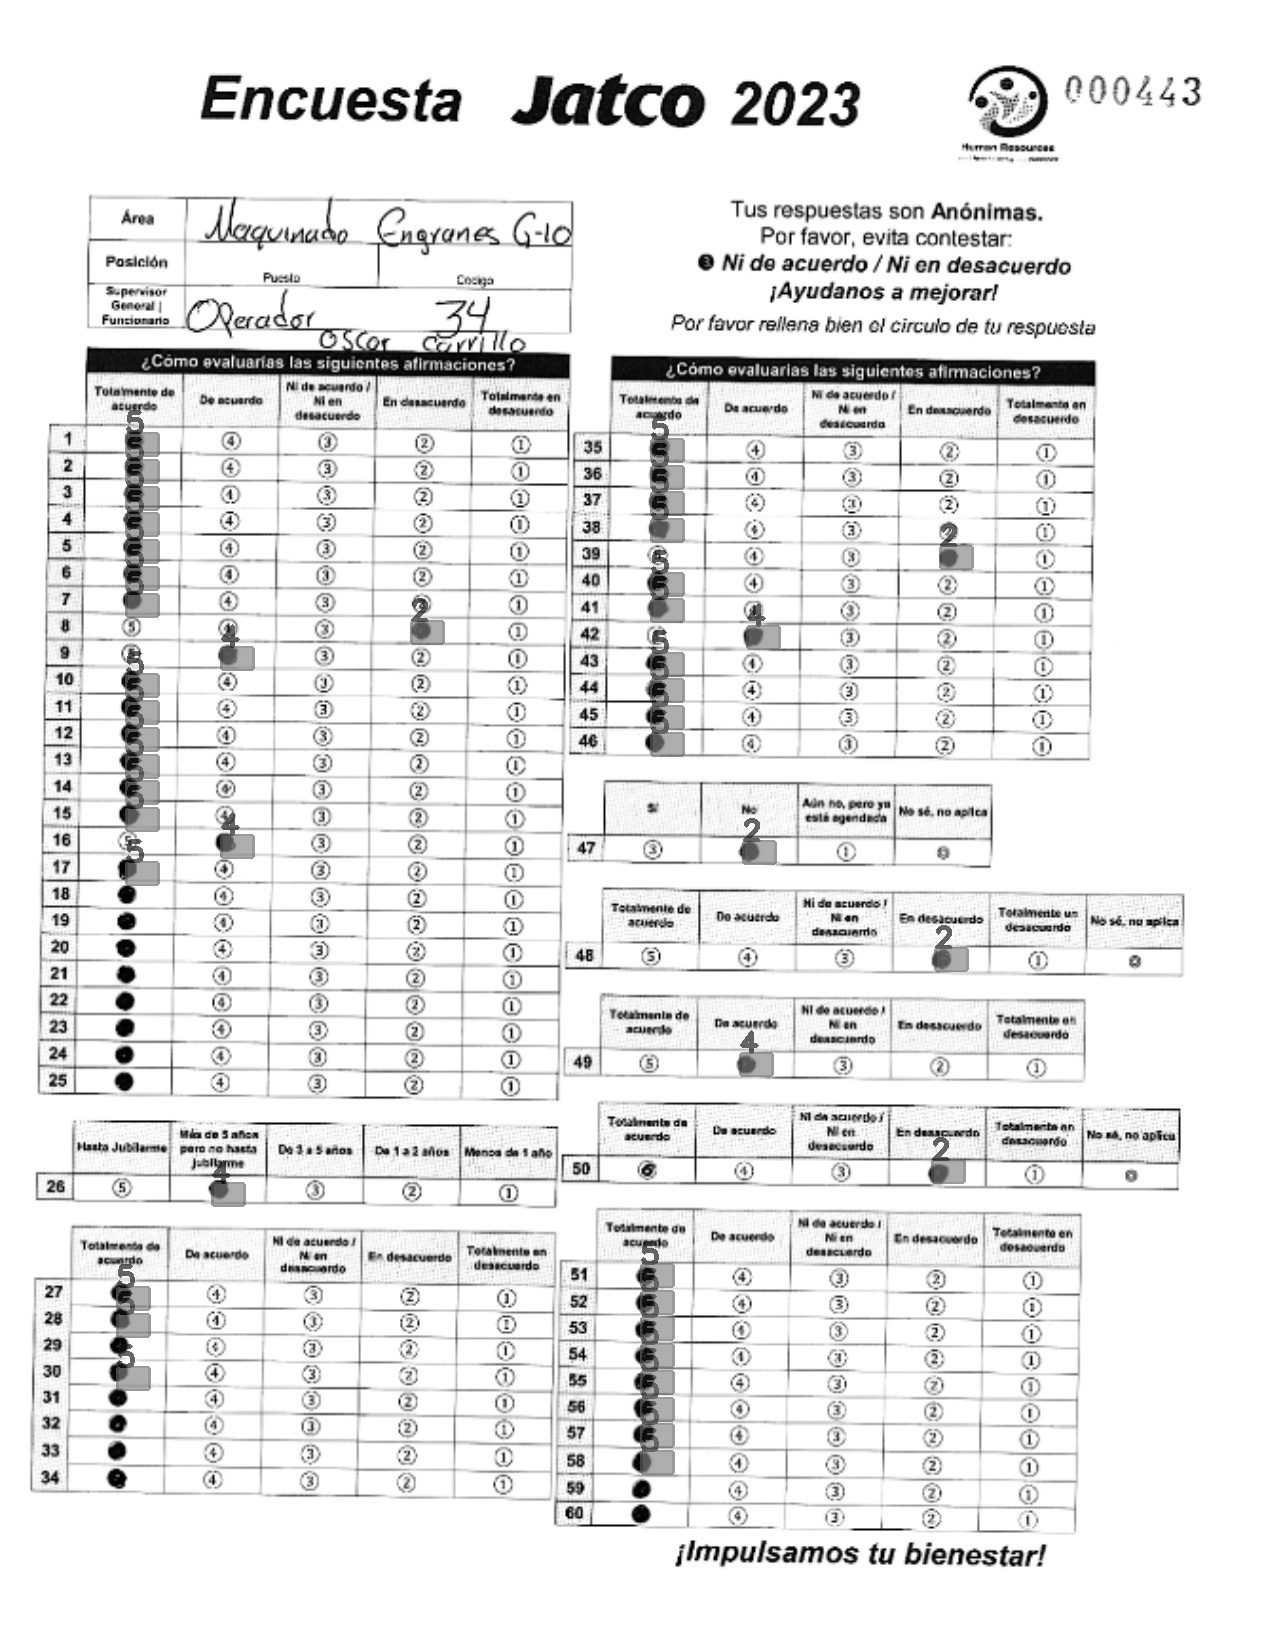 Encuesta Jatco 2023
Human Resources
000443
Área Maquinado Engranes G-10
Posición
Puesto Codigo
Supervisor General / Funcionario Operador 34
oscar carrillo
Tus respuestas son Anónimas.
Por favor, evita contestar:
❸ Ni de acuerdo / Ni en desacuerdo
¡Ayudanos a mejorar!
Por favor rellena bien el circulo de tu respuesta
¿Cómo evaluarías las siguientes afirmaciones?
Totalmente de acuerdo De acuerdo Ni de acuerdo / Ni en desacuerdo En desacuerdo Totalmente en desacuerdo
1 5 ④ ③ ② ①
2 5 ④ ③ ② ①
3 5 ④ ③ ② ①
4 5 ④ ③ ② ①
5 5 ④ ③ ② ①
6 5 ④ ③ ② ①
7 5 ④ ③ ② ①
8 ⑤ ④ ③ 2 ①
9 ⑤ 4 ③ ② ①
10 5 ④ ③ ② ①
11 5 ④ ③ ② ①
12 5 ④ ③ ② ①
13 5 ④ ③ ② ①
14 5 ④ ③ ② ①
15 5 ④ ③ ② ①
16 ⑤ 4 ③ ② ①
17 5 ④ ③ ② ①
18 ④ ③ ② ①
19 ④ ③ ② ①
20 ④ ③ ② ①
21 ④ ③ ② ①
22 ④ ③ ② ①
23 ④ ③ ② ①
24 ④ ③ ② ①
25 ④ ③ ② ①
Hasta Jubilarme Más de 5 años pero no hasta jubilarme De 3 a 5 años De 1 a 2 años Menos de 1 año
26 ⑤ 4 ③ ② ①
Totalmente de acuerdo De acuerdo Ni de acuerdo / Ni en desacuerdo En desacuerdo Totalmente en desacuerdo
27 5 ④ ③ ② ①
28 5 ④ ③ ② ①
29 ④ ③ ② ①
30 5 ④ ③ ② ①
31 ④ ③ ② ①
32 ④ ③ ② ①
33 ④ ③ ② ①
34 ④ ③ ② ①
¿Cómo evaluarías las siguientes afirmaciones?
Totalmente de acuerdo De acuerdo Ni de acuerdo / Ni en desacuerdo En desacuerdo Totalmente en desacuerdo
35 5 ④ ③ ② ①
36 5 ④ ③ ② ①
37 5 ④ ③ ② ①
38 5 ④ ③ ② ①
39 ⑤ ④ ③ 2 ①
40 5 ④ ③ ② ①
41 5 ④ ③ ② ①
42 ⑤ 4 ③ ② ①
43 5 ④ ③ ② ①
44 5 ④ ③ ② ①
45 5 ④ ③ ② ①
46 5 ④ ③ ② ①
Sí No Aún no, pero ya está agendada No sé, no aplica
47 ③ 2 ① ⓪
Totalmente de acuerdo De acuerdo Ni de acuerdo / Ni en desacuerdo En desacuerdo Totalmente en desacuerdo No sé, no aplica
48 ⑤ ④ ③ 2 ① ⓪
Totalmente de acuerdo De acuerdo Ni de acuerdo / Ni en desacuerdo En desacuerdo Totalmente en desacuerdo
49 ⑤ 4 ③ ② ①
Totalmente de acuerdo De acuerdo Ni de acuerdo / Ni en desacuerdo En desacuerdo Totalmente en desacuerdo No sé, no aplica
50 ⑤ ④ ③ 2 ① ⓪
Totalmente de acuerdo De acuerdo Ni de acuerdo / Ni en desacuerdo En desacuerdo Totalmente en desacuerdo
51 5 ④ ③ ② ①
52 5 ④ ③ ② ①
53 5 ④ ③ ② ①
54 5 ④ ③ ② ①
55 5 ④ ③ ② ①
56 5 ④ ③ ② ①
57 5 ④ ③ ② ①
58 5 ④ ③ ② ①
59 ④ ③ ② ①
60 ④ ③ ② ①
¡Impulsamos tu bienestar!